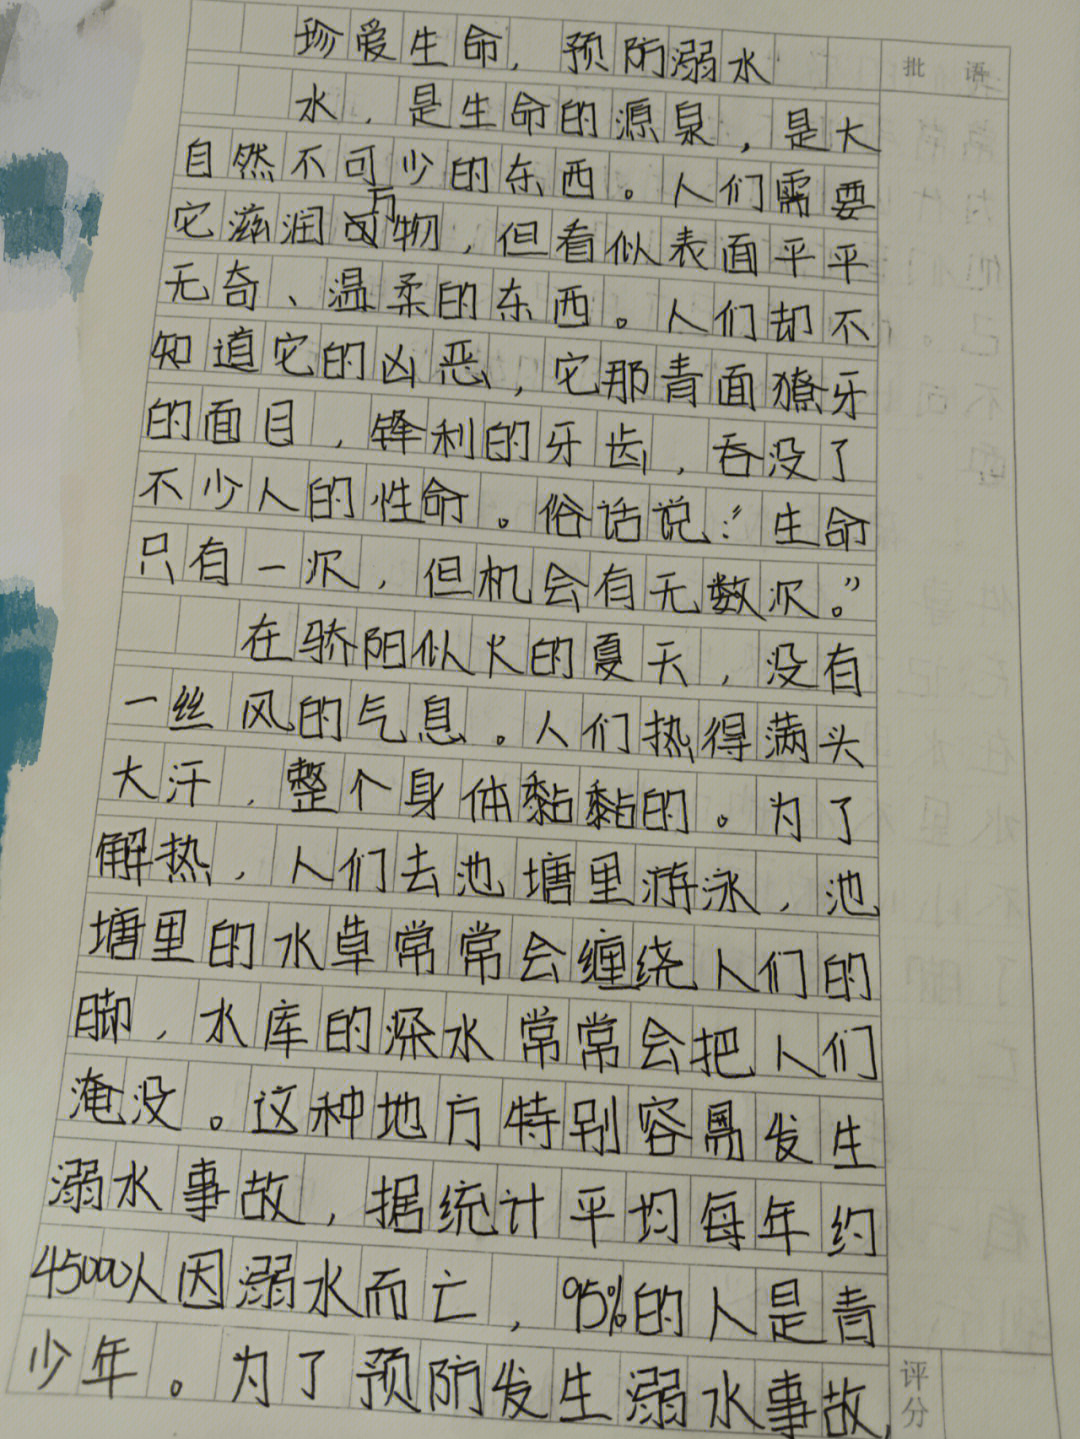 珍爱生命，预防溺水
批 语
水，是生命的源泉，是大
自然不可少的东西。人们需要
它滋润万物，但看似表面平平
无奇、温柔的东西。人们却不
知道它的凶恶，它那青面獠牙
的面目，锋利的牙齿，吞没了
不少人的性命。俗话说：“生命
只有一次，但机会有无数次。”
在骄阳似火的夏天，没有
一丝风的气息。人们热得满头
大汗，整个身体黏黏的。为了
解热，人们去池塘里游泳，池
塘里的水草常常会缠绕人们的
脚，水库的深水常常会把人们
淹没。这种地方特别容易发生
溺水事故，据统计平均每年约
45000人因溺水而亡，95%的人是青
少年。为了预防发生溺水事故，
评分